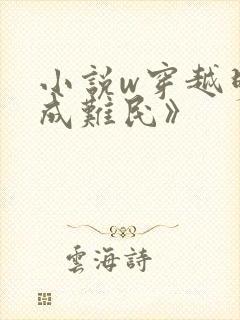 小説w穿越
成難民》
雲海詩